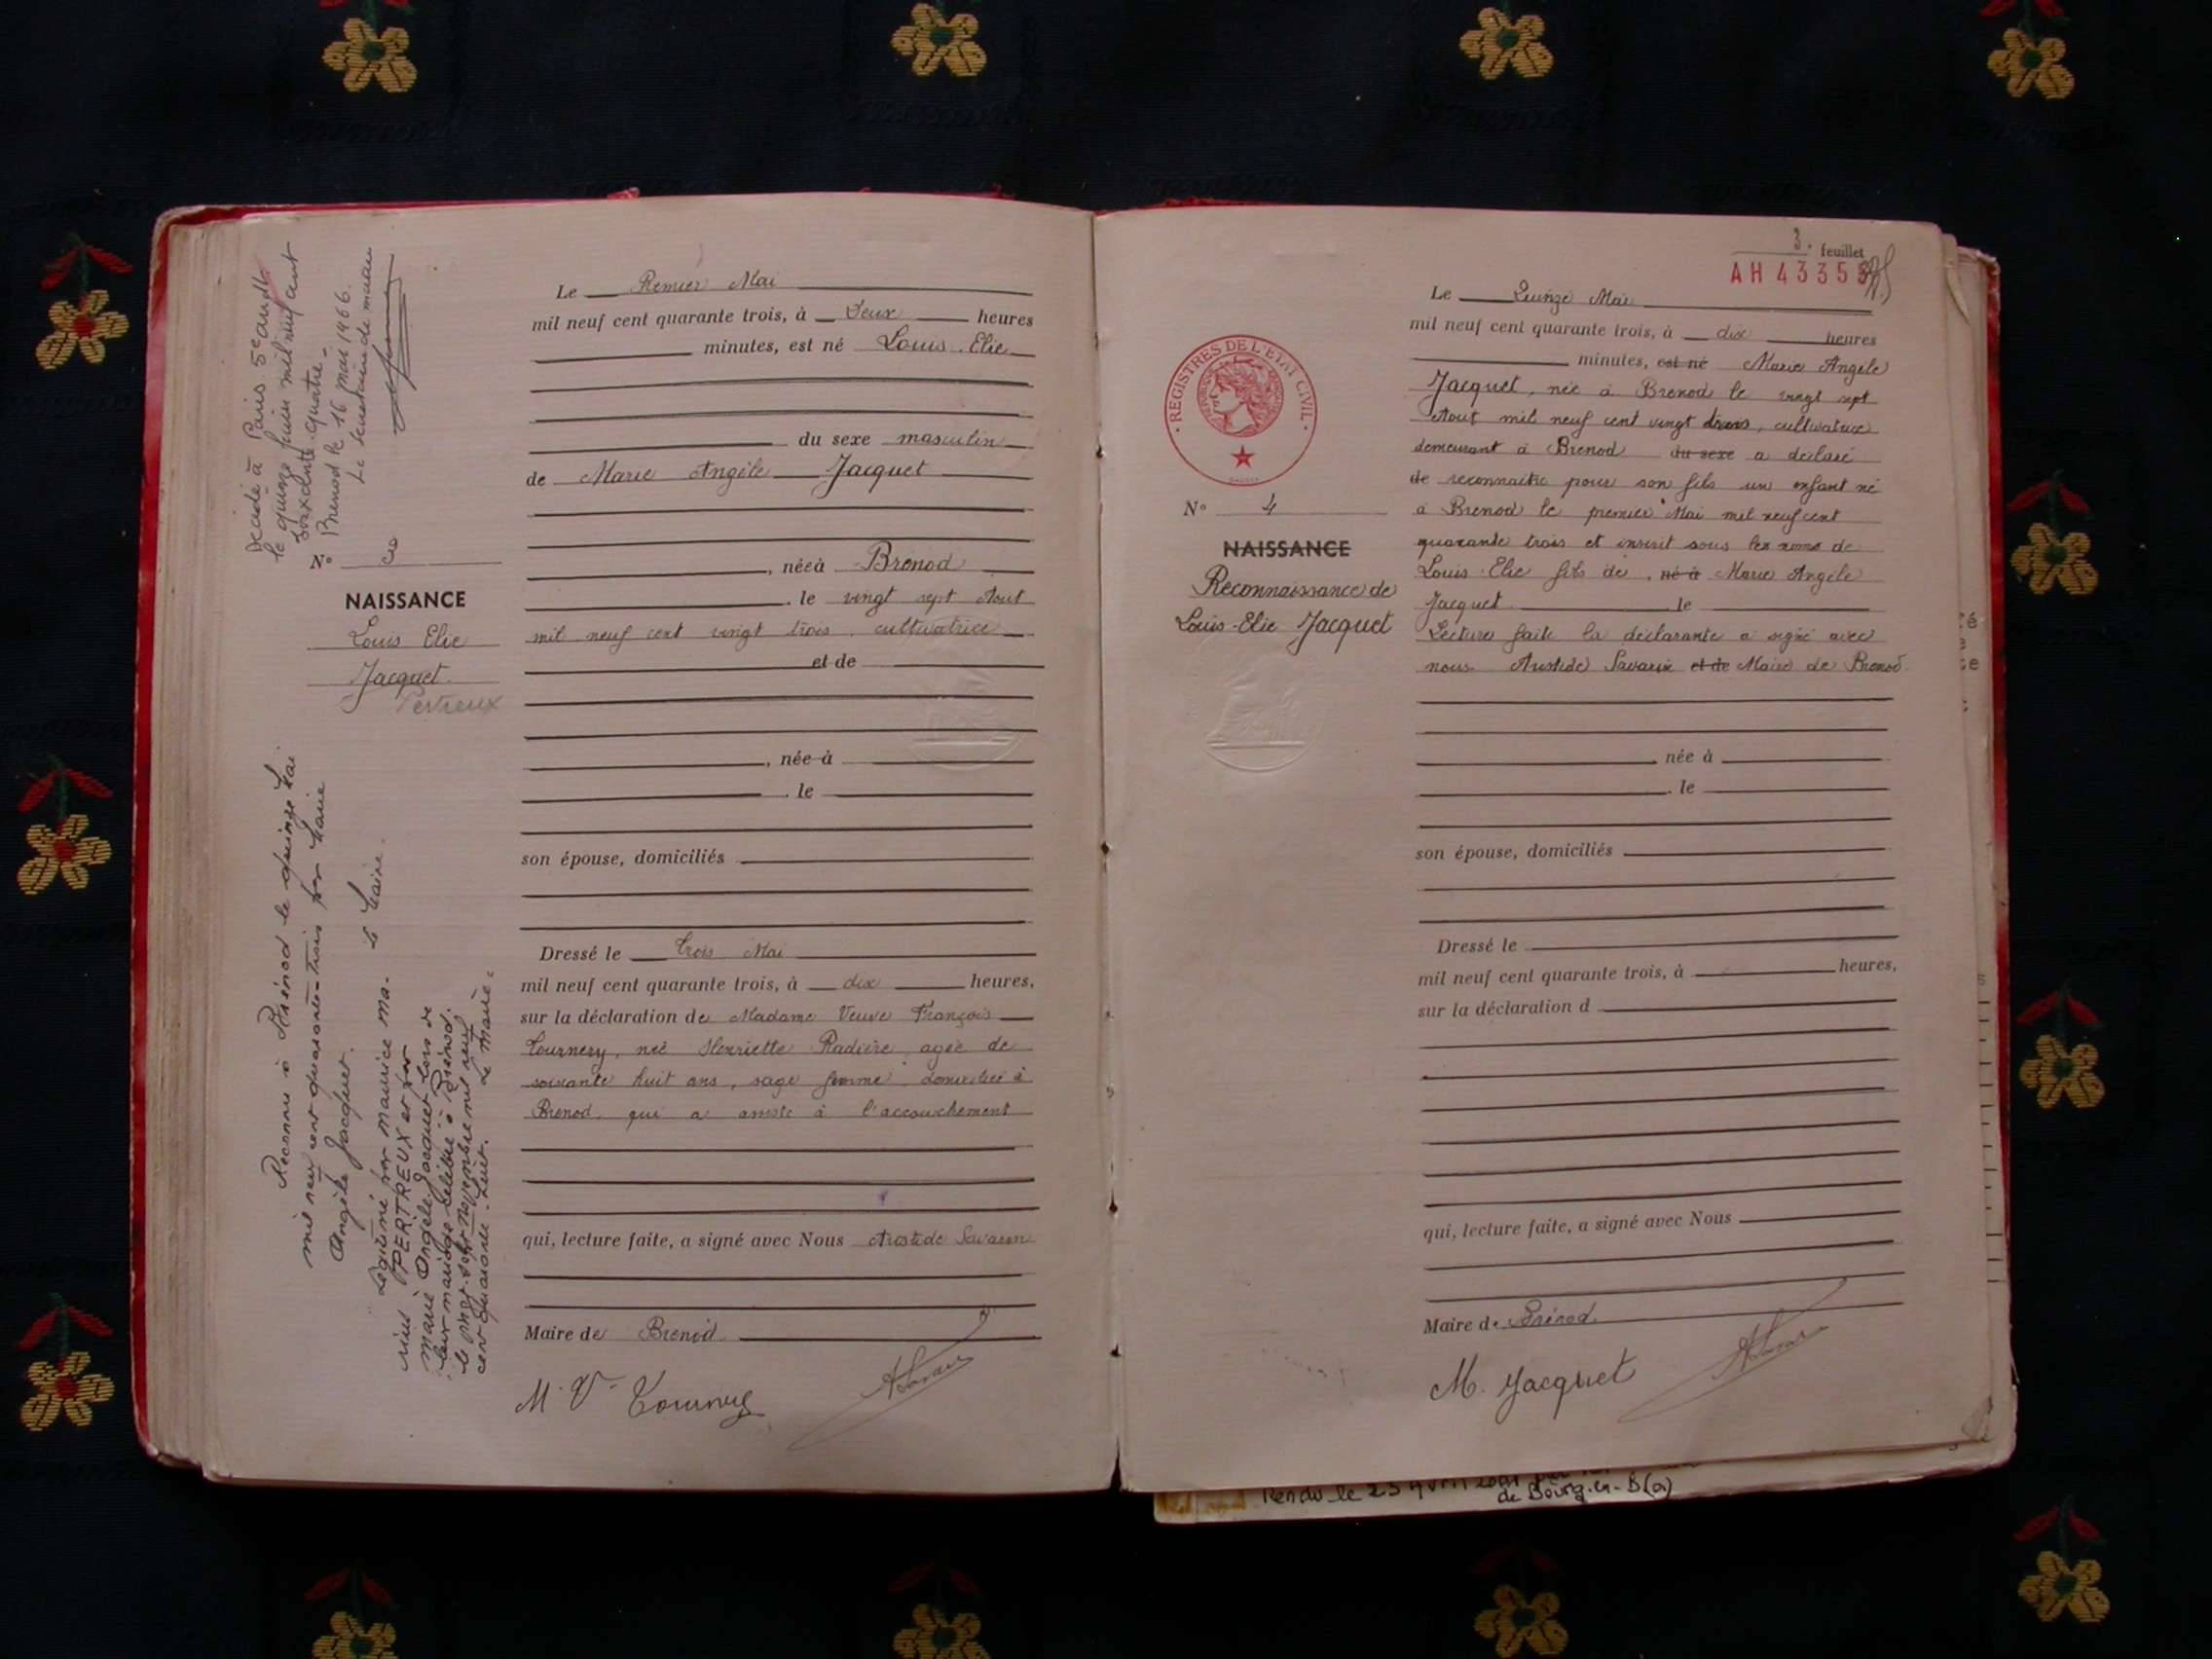 Décédé à Paris 5e arrondt
le quinze juin mil neuf cent
soixante-quatre.
Brenod le 16 mai 1966.
Le secrétaire de mairie
N° 3
NAISSANCE
Louis Elie
Jacquet
Pertreux
Reconnu à Brénod le quinze Mai
mil neuf cent quarante-trois par Marie
Angèle Jacquet. Le Maire.
Légitimé par Maurice Ma-
rius PERTREUX et par
Marie Angèle Jacquet lors de
leur mariage célébré à Brénod
le vingt-sept novembre mil neuf
cent quarante-huit. Le Maire.
Le Premier Mai
mil neuf cent quarante trois, à Deux heures
minutes, est né Louis Elie
du sexe masculin
de Marie Angèle Jacquet
, née à Brenod
, le vingt sept Aout
mil neuf cent vingt trois, cultivatrice
et de
, née à
, le
son épouse, domiciliés
Dressé le trois Mai
mil neuf cent quarante trois, à dix heures,
sur la déclaration de Madame Veuve François
Tournery, neé Henriette Radière, agée de
soixante huit ans, sage femme, domiciliée à
Brenod, qui a assisté à l'accouchement
qui, lecture faite, a signé avec Nous Aristide Savarin
Maire de Brenod
M. Ve Tournery
3. feuillet
AH 43355
REGISTRES DE L'ETAT CIVIL
N° 4
NAISSANCE
Reconnaissance de
Louis-Elie Jacquet
Le Quinze Mai
mil neuf cent quarante trois, à dix heures
minutes, est né Marie Angèle
Jacquet, née à Brenod le vingt sept
Aout mil neuf cent vingt trois, cultivatrice
demeurant à Brenod du sexe a déclaré
de reconnaitre pour son fils un enfant né
à Brenod le premier Mai mil neuf cent
quarante trois et inscrit sous les noms de
Louis Elie fils de , né à Marie Angèle
Jacquet le
Lecture faite la déclarante a signé avec
nous Aristide Savarin et de Maire de Brenod
née à
, le
son épouse, domiciliés
Dressé le
mil neuf cent quarante trois, à heures,
sur la déclaration d
qui, lecture faite, a signé avec Nous
Maire de Brénod.
M. Jacquet
Rendu le 23 Avril
de Bourg-en-B(a)